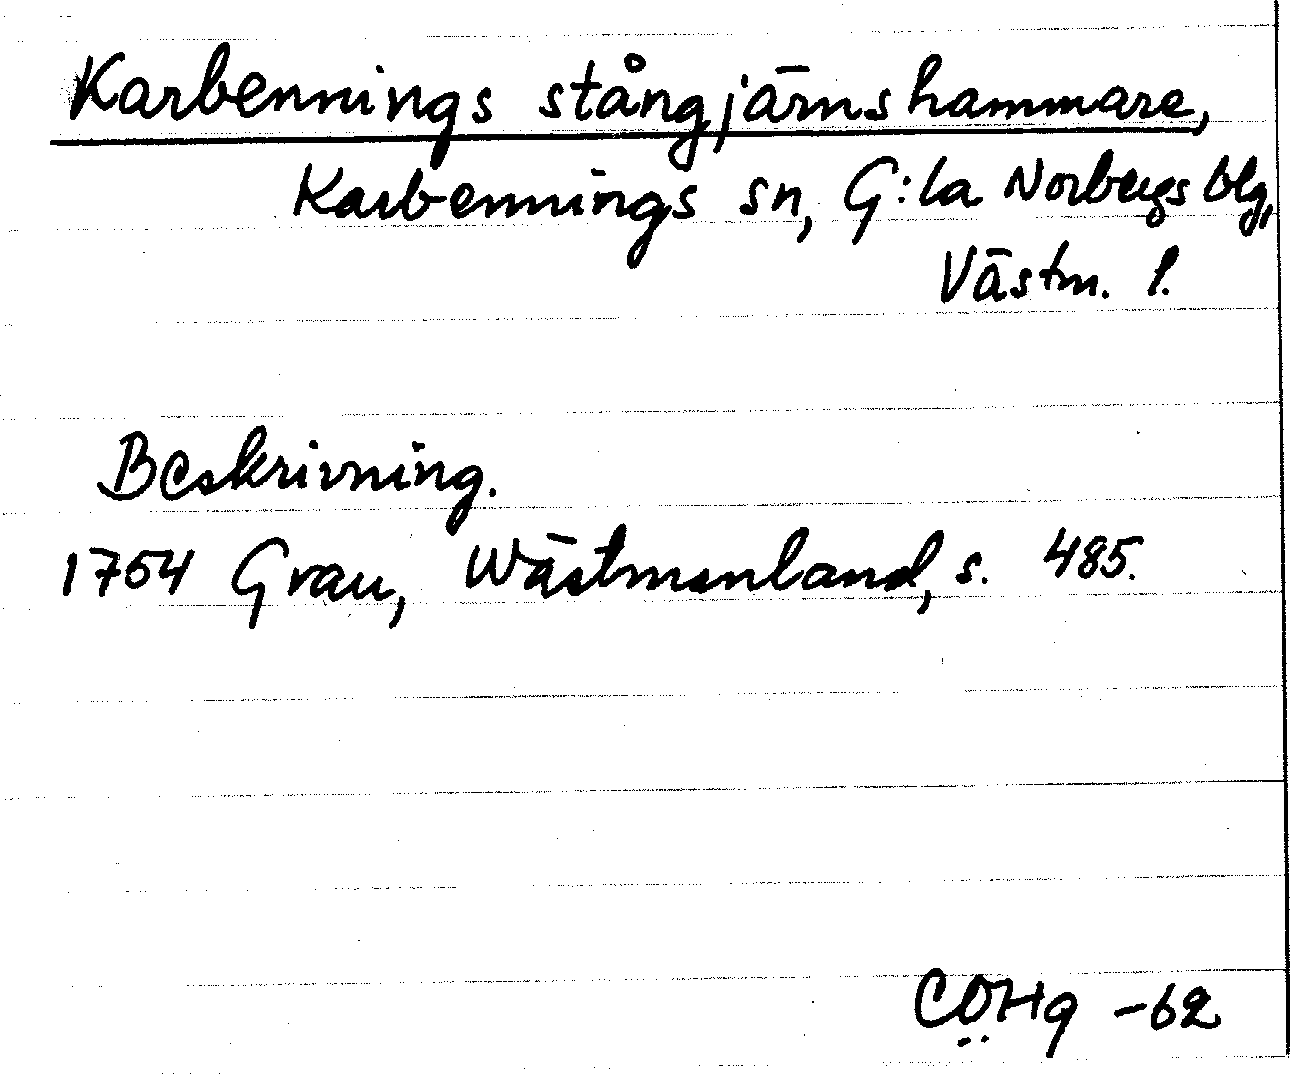 Karbennings stångjärnshammare,
Karbennings sn, G:la Norbergs blg,
Västm. l.
Beskrivning.
1754 Grau, Wästmanland, s. 485.
CÖHg -62